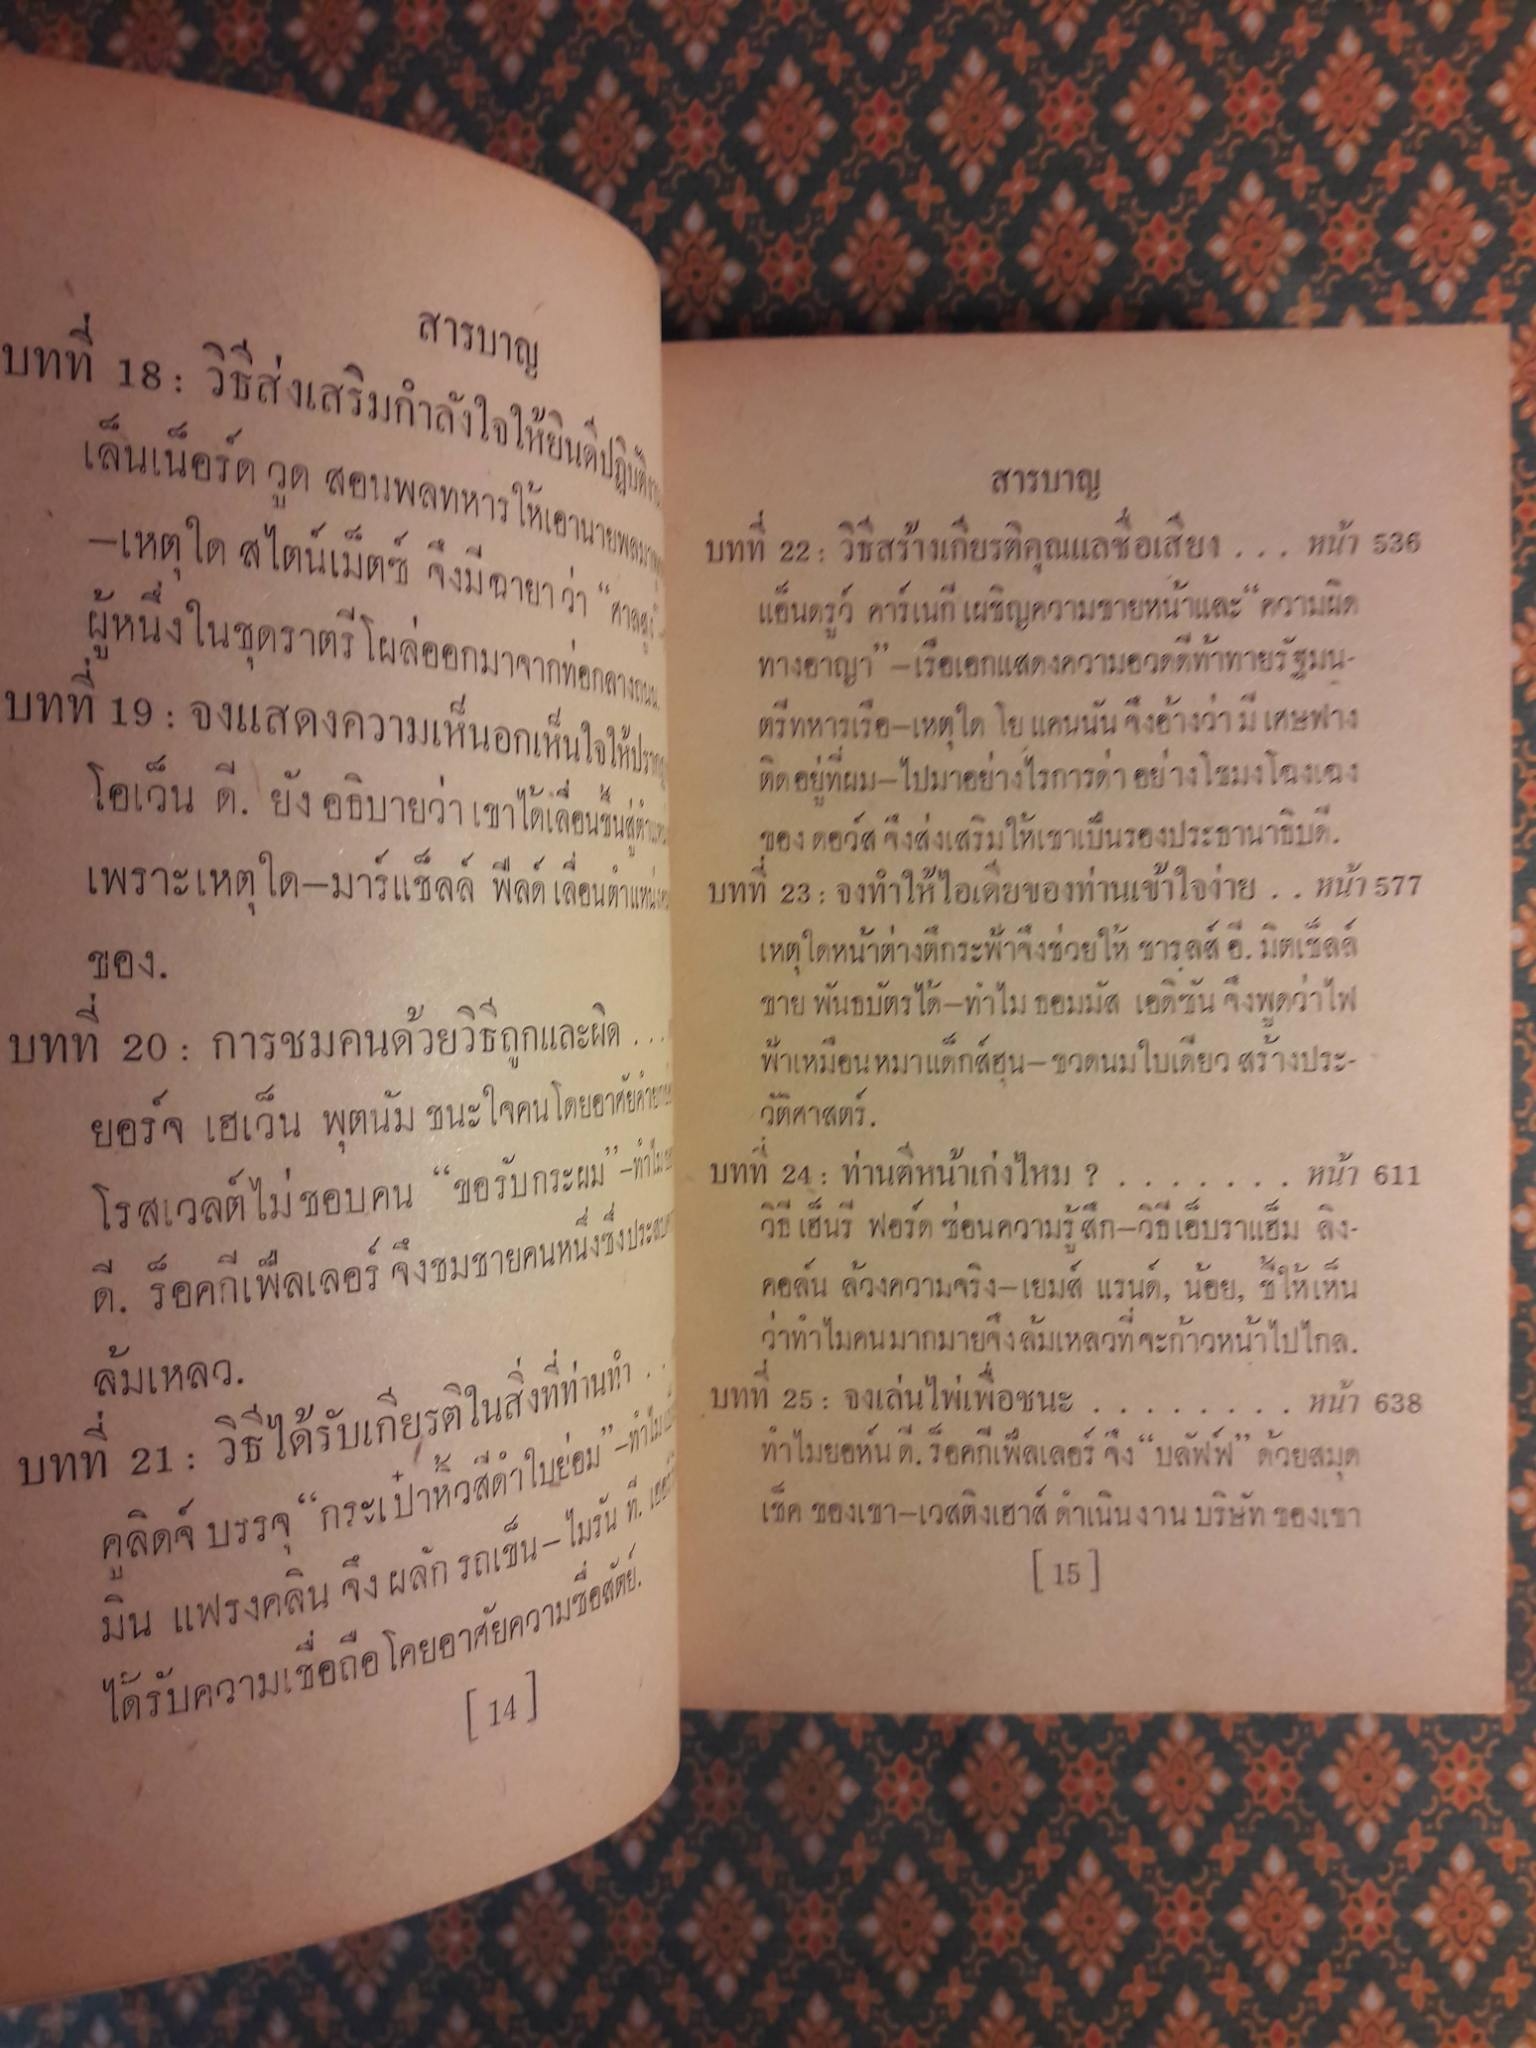 สารบาญ
บทที่ 18 : วิธีส่งเสริมกำลังใจให้ยินดีปฏิบัติงาน
เล็นเน็อร์ด วูด สอนพลทหารให้เอานายพลมา
—เหตุใด สไตน์เม็ตซ์ จึงมีฉายาว่า “ศาลสูง”—
ผู้หนึ่งในชุดราตรีโผล่ออกมาจากท่อกลางถนน.
บทที่ 19 : จงแสดงความเห็นอกเห็นใจให้ปรากฏ
โอเว็น ดี. ยัง อธิบายว่า เขาได้เลื่อนขึ้นสู่ตำแหน่ง
เพราะเหตุใด—มาร์แช็ลล์ ฟีลด์ เลื่อนตำแหน่ง
ของ.
บทที่ 20 : การชมคนด้วยวิธีถูกและผิด . . .
ยอร์จ เฮเว็น พุตนัม ชนะใจคนโดยอาศัยคำ
โรสเวลต์ไม่ชอบคน “ขอรับกระผม”—ทำไม
ดี. ร็อคกีเฟ็ลเลอร์ จึงชมชายคนหนึ่งซึ่งประสบ
ล้มเหลว.
บทที่ 21 : วิธีได้รับเกียรติในสิ่งที่ท่านทำ . .
คูลิดจ์ บรรจุ “กระเป๋าหิ้วสีดำใบย่อม”—ทำไม
มิน แฟรงคลิน จึง ผลัก รถเข็น—ไมรัน ที.
ได้รับความเชื่อถือโดยอาศัยความซื่อสัตย์.
[ 14 ]
สารบาญ
บทที่ 22 : วิธีสร้างเกียรติคุณแลชื่อเสียง . . . หน้า 536
แอ็นดรูว์ คาร์เนกี เผชิญความขายหน้าและ“ความผิด
ทางอาญา”—เรือเอกแสดงความอวดดีท้าทายรัฐมน-
ตรีทหารเรือ—เหตุใด โย แคนนัน จึงอ้างว่า มี เศษฟาง
ติดอยู่ที่ผม—ไปมาอย่างไรการด่า อย่างโขมงโฉงเฉง
ของ ดอว์ส จึงส่งเสริมให้เขาเป็นรองประธานาธิบดี.
บทที่ 23 : จงทำให้ไอเดียของท่านเข้าใจง่าย . . หน้า 577
เหตุใดหน้าต่างตึกระฟ้าจึงช่วยให้ ชารลส์ อี. มิตเช็ลล์
ขาย พันธบัตรได้—ทำไม ธอมมัส เอดิซัน จึงพูดว่าไฟ
ฟ้าเหมือนหมาแด็กส์ฮุน—ขวดนมใบเดียว สร้างประ-
วัติศาสตร์.
บทที่ 24 : ท่านตีหน้าเก่งไหม ? . . . . . . . หน้า 611
วิธี เฮ็นรี ฟอร์ด ซ่อนความรู้สึก—วิธีเอ็บราแฮ็ม ลิง-
คอล์น ล้วงความจริง—เยมส์ แรนด์, น้อย, ชี้ให้เห็น
ว่าทำไมคนมากมายจึงล้มเหลวที่จะก้าวหน้าไปไกล.
บทที่ 25 : จงเล่นไพ่เพื่อชนะ . . . . . . . . หน้า 638
ทำไมยอห์น ดี. ร็อคกีเฟ็ลเลอร์ จึง “บลัฟฟ์” ด้วยสมุด
เช็ค ของเขา—เวสติงเฮาส์ ดำเนินงาน บริษัท ของเขา
[ 15 ]